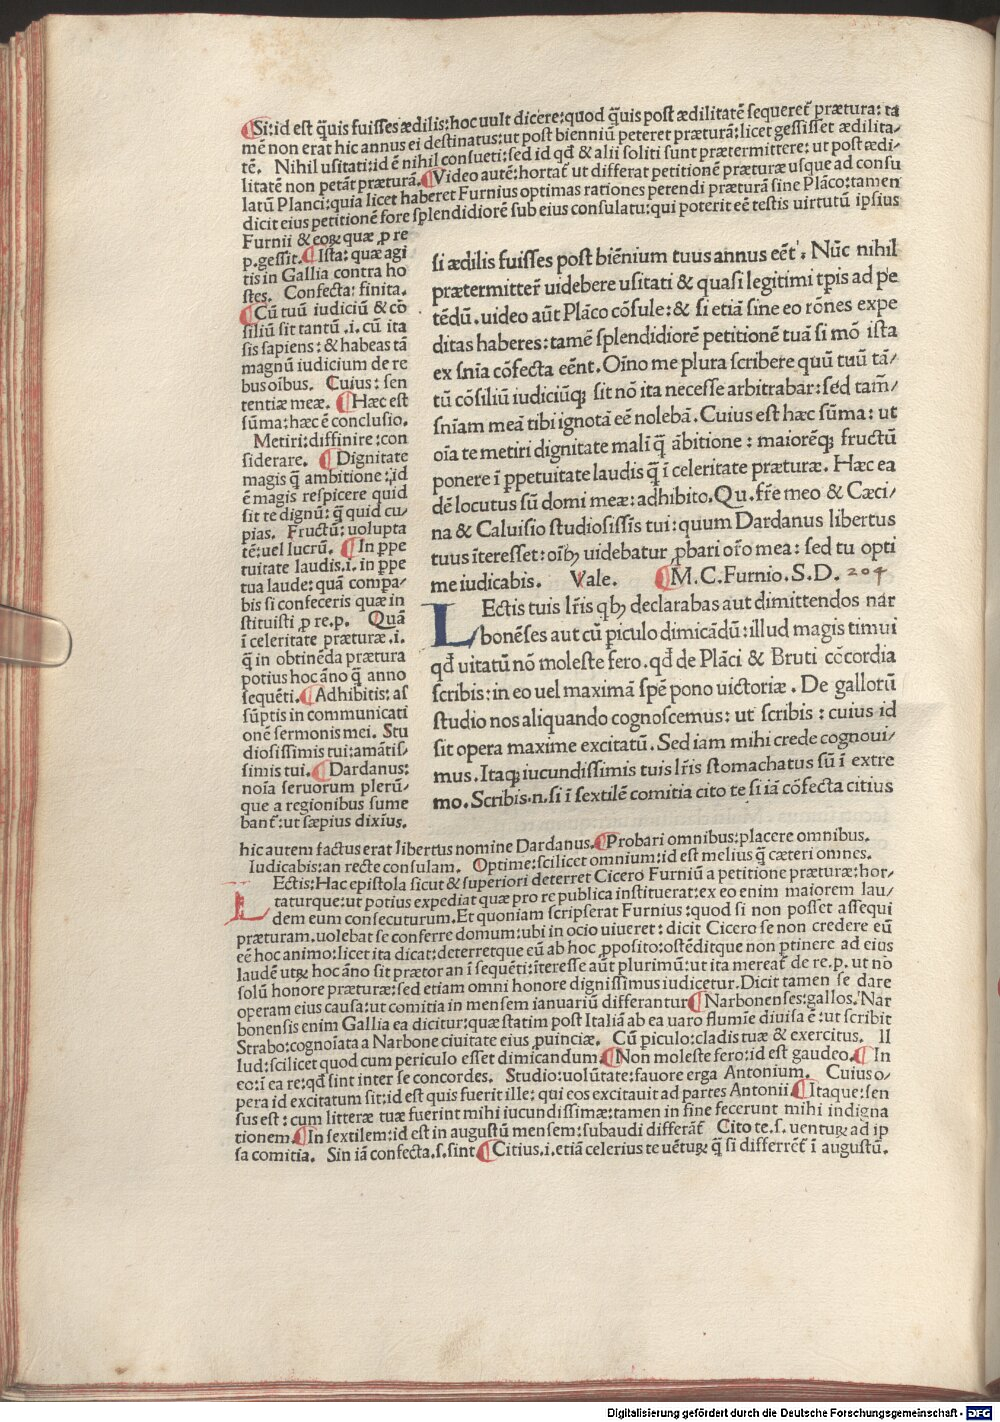 ¶Si:id est q̃uis fuisses ædilis:hoc uult dicere:quod q̃uis post ædilitatẽ sequeret̃ prætura: ta
mẽ non erat hic annus ei destinatus:ut post bienniũ peteret præturã:licet gessisset ædilita/
tẽ. Nihil usitati:id ẽ nihil consueti:sed id qđ & alii soliti sunt prætermittere: ut post ædi/
litatẽ non petãt præturã.¶Video autẽ:hortat̃ ut differat petitionẽ præturæ usque ad consu
latũ Planci:quia licet haberet Furnius optimas rationes petendi præturã sine Plãco:tamen
dicit eius petitionẽ fore splendidiorẽ sub eius consulatu:qui poterit eẽ testis uirtutũ ipsius
Furnii & eoꝝ quæ ꝓ re
p.gessit.¶Ista: quæ agi
tis in Gallia contra ho
stes. Confecta: finita.
¶Cũ tuũ iudiciũ & cõ
siliũ sit tantũ .i. cũ ita
sis sapiens: & habeas tã
magnũ iudicium de re
bus oĩbus. Cuius: sen
tentiæ meæ. ¶Hæc est
sũma: hæc ẽ conclusio.
Metiri: diffinire: con
siderare. ¶Dignitate
magis q̃ ambitione: id
ẽ magis respicere quid
sit te dignũ: q̃ quid cu/
pias. Fructũ: uolupta
tẽ: uel lucrũ. ¶In ꝑpe
tuitate laudis.i. in ꝑpe
tua laude: quã compa/
bis si confeceris quæ in
stituisti ꝓ re.p. Quã
ĩ celeritate præturæ .i.
q̃ in obtinẽda prætura
potius hoc ãno q̃ anno
sequẽti.¶Adhibitis: as
sũptis in communicati
onẽ sermonis mei. Stu
diosissimis tui: amãtis/
simis tui. ¶Dardanus:
noĩa seruorum plerũ/
que a regionibus sume
bant̃: ut sæpius dixiús.
si ædilis fuisses post biẽnium tuus annus eẽt. Nũc nihil
prætermitter̃ uidebere usitati & quasi legitimi tp̃is ad pe
tẽdũ. uideo aũt Plãco cõsule: & si etiã sine eo rõnes expe
ditas haberes: tamẽ splendidiorẽ petitionẽ tuã si mõ ista
ex sñia cõfecta eẽnt. Oĩno me plura scribere quũ tuũ tã/
tũ cõsiliũ iudiciũq; sit nõ ita necesse arbitrabãr: sed tam̃/
sñiam meã tibi ignotã eẽ nolebã. Cuius est hæc sũma: ut
oĩa te metiri dignitate malĩ q̃ ãbitione: maiorẽq; fructũ
ponere ĩ ꝑpetuitate laudis q̃ ĩ celeritate præturæ. Hæc ea
dẽ locutus sũ domi meæ: adhibito. Qu. fr̃e meo & Cæci/
na & Caluisio studiosissĩs tui: quum Dardanus libertus
tuus ĩteresset: oĩbꝫ uidebatur ꝓbari or̃o mea: sed tu opti
me iudicabis. Vale. ¶M.C.Furnio.S.D. 204
LEctis tuis lr̃is qbꝫ declarabas aut dimittendos nar
bonẽses aut cũ piculo dimicãdũ: illud magis timui
qđ uitatũ nõ moleste fero. qđ de Plãci & Bruti cõcordia
scribis: in eo uel maximã spẽ pono uictoriæ. De gallorũ
studio nos aliquando cognoscemus: ut scribis: cuius id
sit opera maxime excitatũ. Sed iam mihi crede cognoui/
mus. Itaq; iucundissimis tuis lr̃is stomachatus sũ ĩ extre
mo. Scribis.n.si ĩ sextilẽ comitia cito te si iã cõfecta citius
hic autem factus erat libertus nomine Dardanus.¶Probari omnibus:placere omnibus.
Iudicabis:an recte consulam. Optime:scilicet omnium:id est melius q̃ cæteri omnes.
LEctis: Hac epistola sicut & superiori deterret Cicero Furniũ a petitione præturæ: hor/
taturque: ut potius expediat quæ pro re publica instituerat: ex eo enim maiorem lau/
dem eum consecuturum. Et quoniam scripserat Furnius: quod si non posset assequi
præturam. uolebat se conferre domum: ubi in ocio uiueret: dicit Cicero se non credere eũ
eẽ hoc animo: licet ita dicat: deterretque eũ ab hoc ꝓposito: ostẽditque non ꝑtinere ad eius
laudẽ utꝝ hoc ãno sit prætor an ĩ sequẽti: ĩteresse aũt plurimũ: ut ita mereat̃ de re.p. ut nõ
solũ honore præturæ: sed etiam omni honore dignissimus iudicetur. Dicit tamen se dare
operam eius causa: ut comitia in mensem ianuariũ differantur¶Narbonenses: gallos. Nar
bonensis enim Gallia ea dicitur: quæ statim post Italiã ab ea uaro flumĩe diuisa ẽ: ut scribit
Strabo: cognoĩata a Narbone ciuitate eius ꝓuinciæ. Cũ ꝑiculo: cladis tuæ & exercitus. Il
lud: scilicet quod cum periculo esset dimicandum.¶Non moleste fero: id est gaudeo.¶In
eo: ĩ ea re: qđ sint inter se concordes. Studio: uolũtate: fauore erga Antonium. Cuius o/
pera id excitatum sit: id est quis fuerit ille: qui eos excitauit ad partes Antonii¶Itaque: sen
sus est: cum litteræ tuæ fuerint mihi iucundissimæ: tamen in fine fecerunt mihi indigna
tionem.¶In sextilem: id est in augustũ mensem: subaudi differãt̃ Cito te.s. uenturꝝ ad ip
sa comitia. Sin iã confecta.s.sint¶Citius.i.etiã celerius te uẽturꝝ q̃ si differrẽt̃ ĩ augustũ.
Digitalisierung gefördert durch die Deutsche Forschungsgemeinschaft - DFG